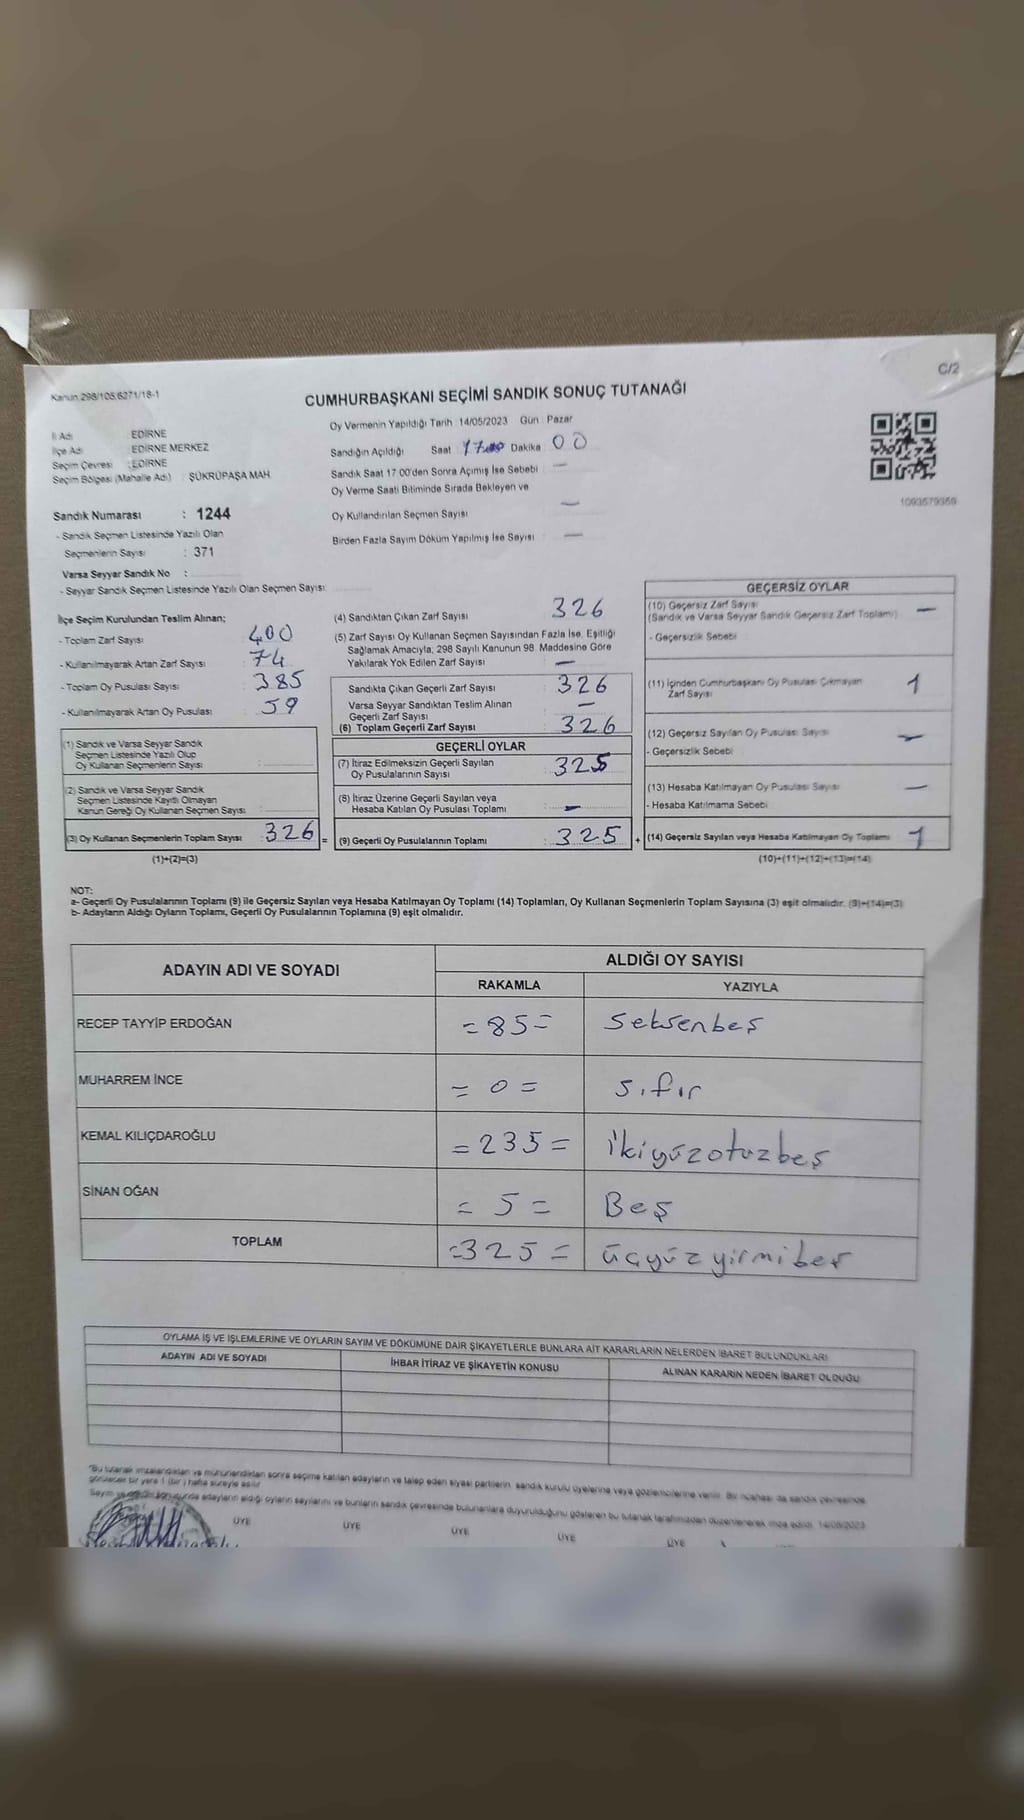 Kanun.298/105,6271/18-1
C/2
CUMHURBAŞKANI SEÇİMİ SANDIK SONUÇ TUTANAĞI
İl Adı : EDİRNE
İlçe Adı : EDİRNE MERKEZ
Seçim Çevresi : EDİRNE
Seçim Bölgesi (Mahalle Adı) : ŞÜKRÜPAŞA MAH
Sandık Numarası : 1244
- Sandık Seçmen Listesinde Yazılı Olan
Seçmenlerin Sayısı : 371
Varsa Seyyar Sandık No :
- Seyyar Sandık Seçmen Listesinde Yazılı Olan Seçmen Sayısı:
Oy Vermenin Yapıldığı Tarih :14/05/2023 Gün : Pazar
Sandığın Açıldığı Saat 17 Dakika 00
Sandık Saat 17.00'den Sonra Açmış İse Sebebi —
Oy Verme Saati Bitiminde Sırada Bekleyen ve
Oy Kullandırılan Seçmen Sayısı —
Birden Fazla Sayım Döküm Yapılmış İse Sayısı —
1093579359
İlçe Seçim Kurulundan Teslim Alınan;
- Toplam Zarf Sayısı : 400
- Kullanılmayarak Artan Zarf Sayısı : 74
- Toplam Oy Pusulası Sayısı : 385
- Kullanılmayarak Artan Oy Pusulası : 59
(1) Sandık ve Varsa Seyyar Sandık
Seçmen Listesinde Yazılı Olup
Oy Kullanan Seçmenlerin Sayısı :
(2) Sandık ve Varsa Seyyar Sandık
Seçmen Listesinde Kayıtlı Olmayan
Kanun Gereği Oy Kullanan Seçmen Sayısı :
(3) Oy Kullanan Seçmenlerin Toplam Sayısı : 326 =
(1)+(2)=(3)
(4) Sandıktan Çıkan Zarf Sayısı : 326
(5) Zarf Sayısı Oy Kullanan Seçmen Sayısından Fazla İse, Eşitliği
Sağlamak Amacıyla, 298 Sayılı Kanunun 98. Maddesine Göre
Yakılarak Yok Edilen Zarf Sayısı : —
Sandıkta Çıkan Geçerli Zarf Sayısı : 326
Varsa Seyyar Sandıktan Teslim Alınan
Geçerli Zarf Sayısı : —
(6) Toplam Geçerli Zarf Sayısı : 326
GEÇERLİ OYLAR
(7) İtiraz Edilmeksizin Geçerli Sayılan
Oy Pusulalarının Sayısı : 325
(8) İtiraz Üzerine Geçerli Sayılan veya
Hesaba Katılan Oy Pusulası Toplamı : —
(9) Geçerli Oy Pusulalarının Toplamı : 325 +
GEÇERSİZ OYLAR
(10) Geçersiz Zarf Sayısı
(Sandık ve Varsa Seyyar Sandık Geçersiz Zarf Toplamı) —
- Geçersizlik Sebebi
(11) İçinden Cumhurbaşkanı Oy Pusulası Çıkmayan
Zarf Sayısı 1
(12) Geçersiz Sayılan Oy Pusulası Sayısı —
- Geçersizlik Sebebi
(13) Hesaba Katılmayan Oy Pusulası Sayısı —
- Hesaba Katılmama Sebebi
(14) Geçersiz Sayılan veya Hesaba Katılmayan Oy Toplamı 1
(10)+(11)+(12)+(13)=(14)
NOT:
a- Geçerli Oy Pusulalarının Toplamı (9) ile Geçersiz Sayılan veya Hesaba Katılmayan Oy Toplamı (14) Toplamları, Oy Kullanan Seçmenlerin Toplam Sayısına (3) eşit olmalıdır. (9)+(14)=(3)
b- Adayların Aldığı Oyların Toplamı, Geçerli Oy Pusulalarının Toplamına (9) eşit olmalıdır.
ADAYIN ADI VE SOYADI
ALDIĞI OY SAYISI
RAKAMLA YAZIYLA
RECEP TAYYİP ERDOĞAN =85= Seksenbeş
MUHARREM İNCE = 0 = sıfır
KEMAL KILIÇDAROĞLU =235= İkiyüzotuzbeş
SİNAN OĞAN = 5 = Beş
TOPLAM =325= üçyüzyirmibeş
OYLAMA İŞ VE İŞLEMLERİNE VE OYLARIN SAYIM VE DÖKÜMÜNE DAİR ŞİKAYETLERLE BUNLARA AİT KARARLARIN NELERDEN İBARET BULUNDUKLARI
ADAYIN ADI VE SOYADI
İHBAR İTİRAZ VE ŞİKAYETİN KONUSU
ALINAN KARARIN NEDEN İBARET OLDUĞU
"Bu tutanak imzalandıktan ve mühürlendikten sonra seçime katılan adayların ve talep eden siyasi partilerin, sandık kurulu üyelerine veya gözlemcilerine verilir. Bir nüshası da sandık çevresinde
görülecek bir yere 1 (bir) hafta süreyle asılır
Sayım ve adayların aldığı oyların sayılarını ve bunların sandık çevresinde bulunanlara duyurulduğunu gösteren bu tutanak tarafımızdan düzenlenerek imza edildi. 14/05/2023
ÜYE ÜYE ÜYE ÜYE ÜYE